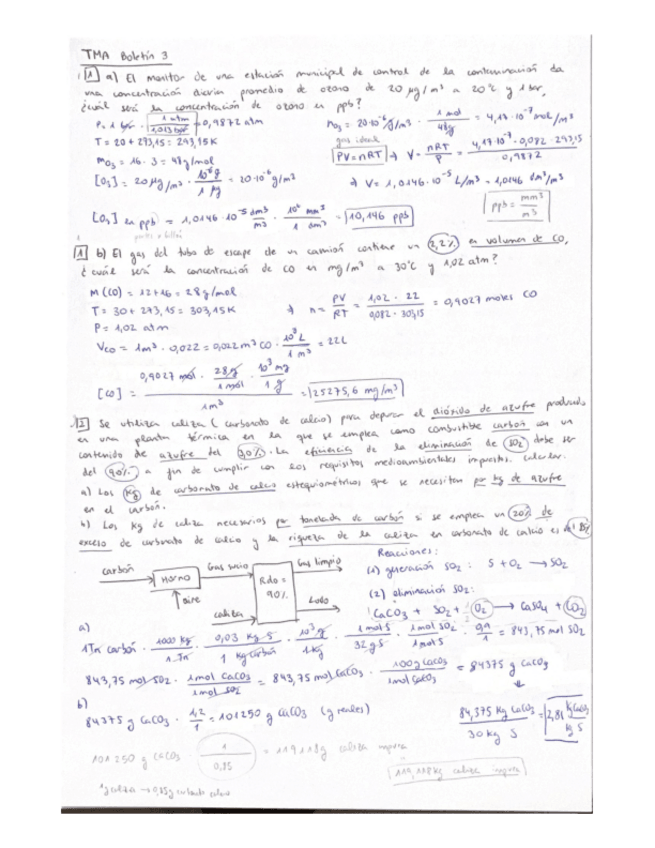 TMA Boletín 3
1 a) El monitor de una estación municipal de control de la contaminación da
una concentración diaria promedio de ozono de 20 µg/m³ a 20°C y 1 bar,
¿cuál será la concentración de ozono en ppb?
P = 1 bar · 1 atm / 1,013 bar = 0,9872 atm
T = 20 + 273,15 = 293,15 K
mO3 = 16 · 3 = 48 g/mol
[O3] = 20 µg/m³ · 10⁻⁶ g / 1 µg = 20·10⁻⁶ g/m³
nO3 = 20·10⁻⁶ g/m³ · 1 mol / 48g = 4,17·10⁻⁷ mol/m³
gas ideal
PV = nRT → V = nRT / P = 4,17·10⁻⁷ · 0,082 · 293,15 / 0,9872
→ V = 1,0146·10⁻⁵ L/m³ = 1,0146 dm³/m³
[O3] en ppb = 1,0146·10⁻⁵ dm³/m³ · 10⁶ mm³ / 1 dm³ = 10,146 ppb
ppb = mm³ / m³
1 b) El gas del tubo de escape de un camión contiene un 2,2% en volumen de CO,
¿cuál será la concentración de CO en mg/m³ a 30°C y 1,02 atm?
M (CO) = 12+16 = 28 g/mol
T = 30 + 273,15 = 303,15 K
P = 1,02 atm
→ n = PV / RT = 1,02 · 22 / 0,082 · 303,15 = 0,9027 moles CO
VCO = 1m³ · 0,022 = 0,022 m³ CO · 10³ L / 1 m³ = 22L
[CO] = 0,9027 mol · 28g / 1 mol · 10³ mg / 1 g / 1m³ = 25275,6 mg/m³
2 Se utiliza caliza (carbonato de calcio) para depurar el dióxido de azufre producido
en una planta térmica en la que se emplea como combustible carbón con un
contenido de azufre del 3,0%. La eficiencia de la eliminación de SO2 debe ser
del 90% a fin de cumplir con los requisitos medioambientales impuestos. Calcular:
a) Los Kg de carbonato de calcio estequiométricos que se necesitan por kg de azufre
en el carbón.
b) Los Kg de caliza necesarios por tonelada de carbón si se emplea un 20% de
exceso de carbonato de calcio y la riqueza de la caliza en carbonato de calcio es del 85%
carbón
Horno
aire
Gas sucio
Rdo = 90%
caliza
Gas limpio
Lodo
Reacciones:
(1) generación SO2: S + O2 → SO2
(2) eliminación SO2:
CaCO3 + SO2 + ½ O2 → CaSO4 + CO2
a)
1Tn carbón · 1000 Kg / 1 Tn · 0,03 Kg S / 1 Kg carbón · 10³ g / 1 kg · 1 mol S / 32 g S · 1 mol SO2 / 1 mol S · 0,9 / 1 = 843,75 mol SO2
843,75 mol SO2 · 1 mol CaCO3 / 1 mol SO2 = 843,75 mol CaCO3 · 100 g CaCO3 / 1 mol CaCO3 = 84375 g CaCO3
84,375 Kg CaCO3 / 30 kg S = 2,81 Kg CaCO3 / Kg S
b)
84375 g CaCO3 · 1,2 / 1 = 101250 g CaCO3 (g reales)
101250 g CaCO3 · 1 / 0,85 = 119118 g caliza impura
119,118 Kg caliza impura
1g caliza → 0,85g carbonato calcio